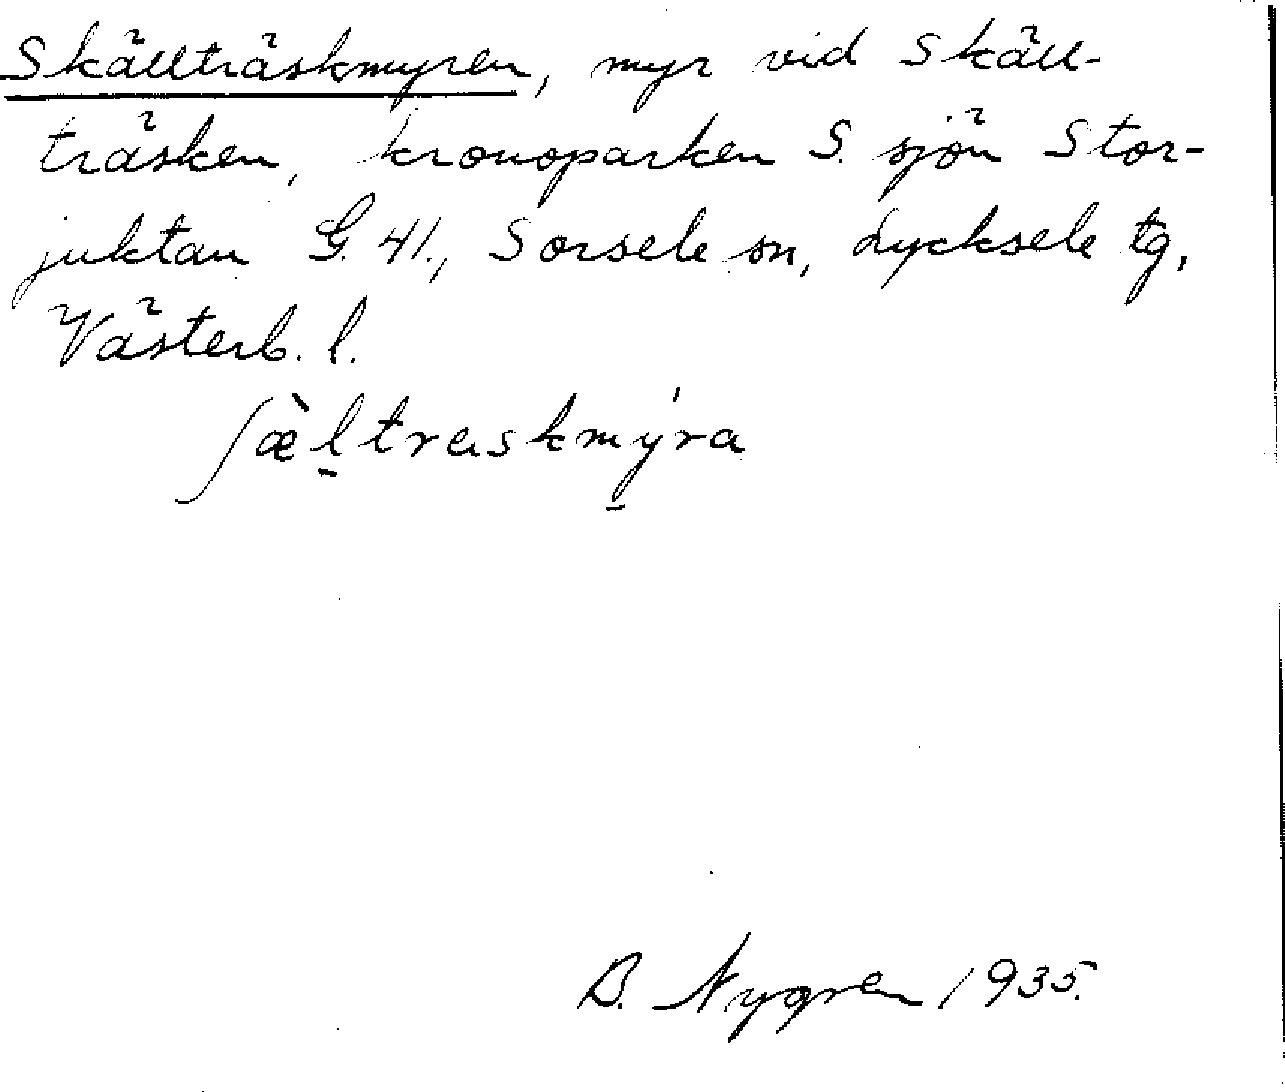 Skällträskmyren, myr vid Skäll-
träsken, kronoparken S. sjön Stor-
juktan G. 41., Sorsele sn, Lycksele tg,
Västerb. l.
ʃæ̀l̠traskmý̠ra
B. Nygren 1935.